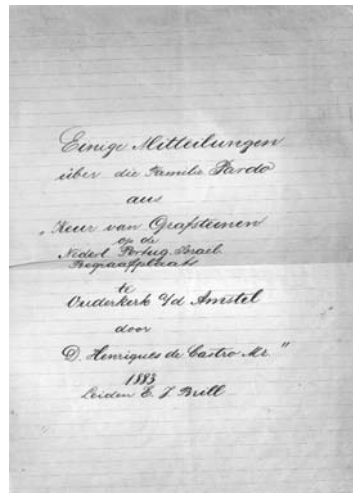 Einige Mitteilungen
über die Familie Pardo
aus
„Keur van Grafsteenen
op de
Nederl. Portug. Israel.
Begraafplaats
te
Ouderkerk a/d Amstel
door
D. Henriques de Castro Mz."
1883
Leiden E. J. Brill